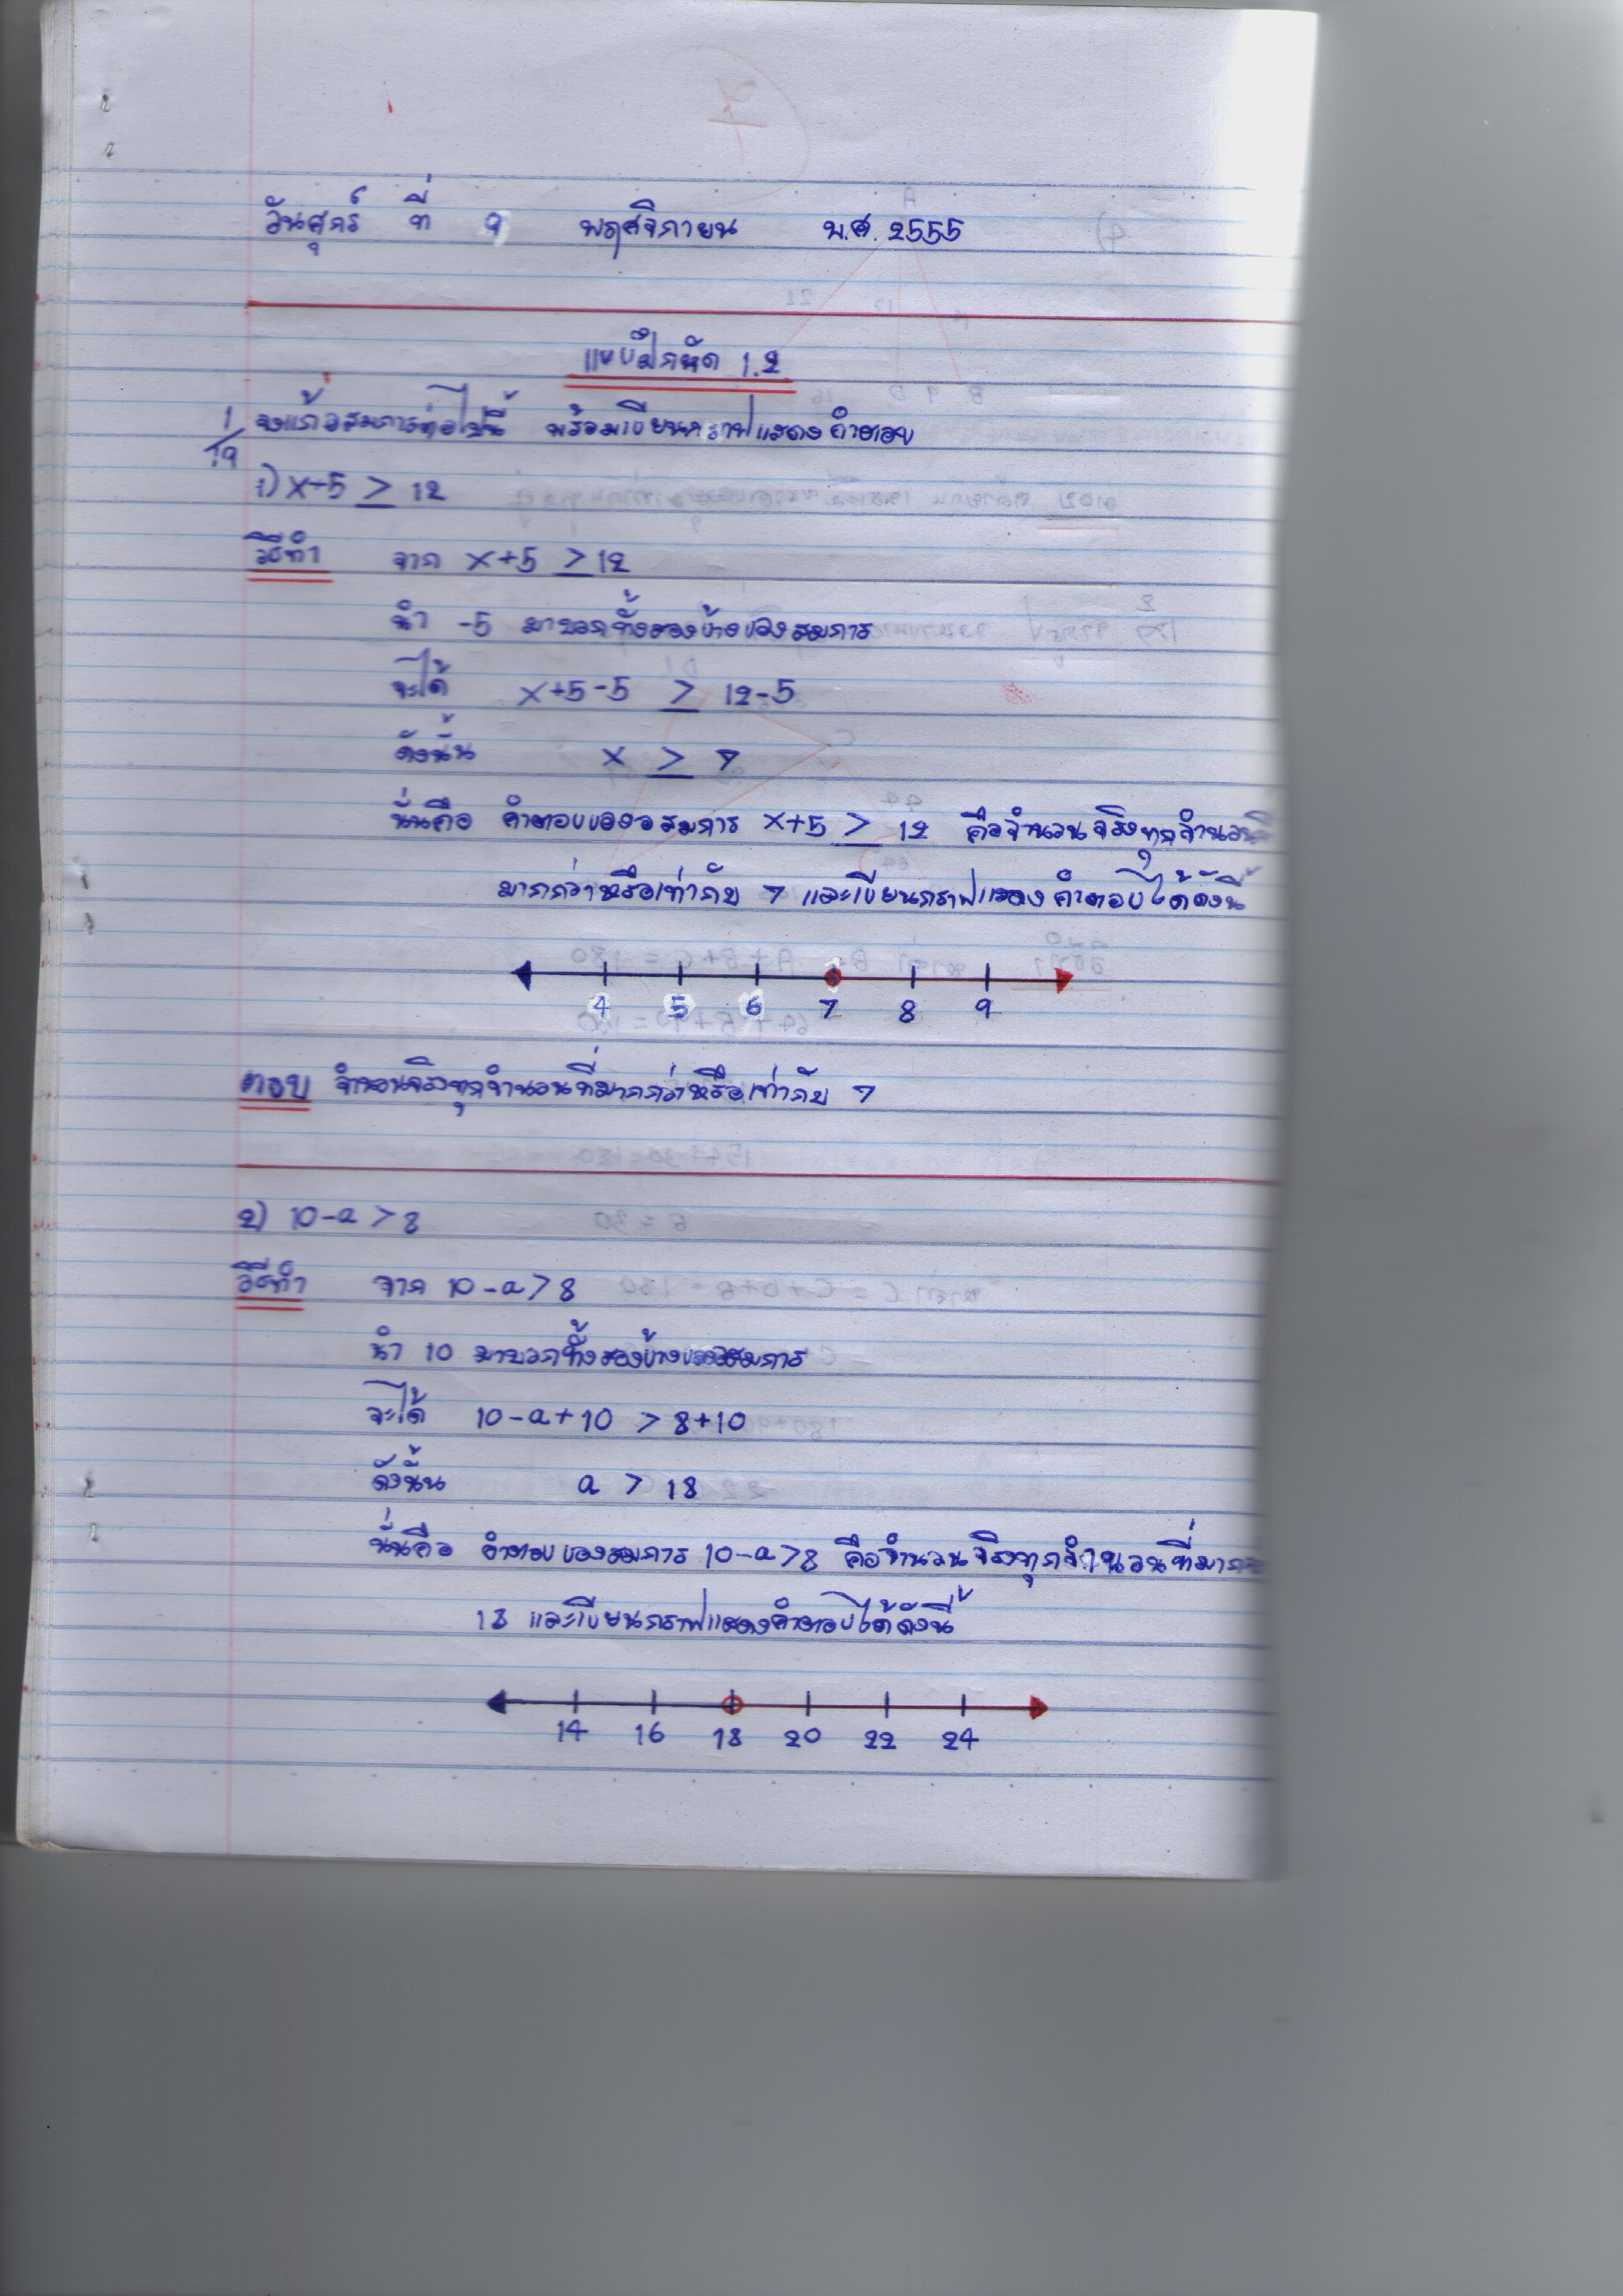 วันศุกร์ ที่ 9 พฤศจิกายน พ.ศ. 2555
แบบฝึกหัด 1.2
1 จงแก้อสมการต่อไปนี้ พร้อมเขียนกราฟแสดงคำตอบ
1) x+5 ≥ 12
วิธีทำ จาก x+5 ≥ 12
นำ -5 มาบวกทั้งสองข้างของสมการ
จะได้ x+5-5 ≥ 12-5
ดังนั้น x ≥ 7
นั่นคือ คำตอบของอสมการ x+5 ≥ 12 คือจำนวนจริงทุกจำนวนที่
มากกว่าหรือเท่ากับ 7 และเขียนกราฟแสดงคำตอบได้ดังนี้
4 5 6 7 8 9
ตอบ จำนวนจริงทุกจำนวนที่มากกว่าหรือเท่ากับ 7
2) 10-a > 8
วิธีทำ จาก 10-a > 8
นำ 10 มาบวกทั้งสองข้างของอสมการ
จะได้ 10-a+10 > 8+10
ดังนั้น a > 18
นั่นคือ คำตอบของสมการ 10-a > 8 คือจำนวนจริงทุกจำนวนที่มาก
18 และเขียนกราฟแสดงคำตอบได้ดังนี้
14 16 18 20 22 24